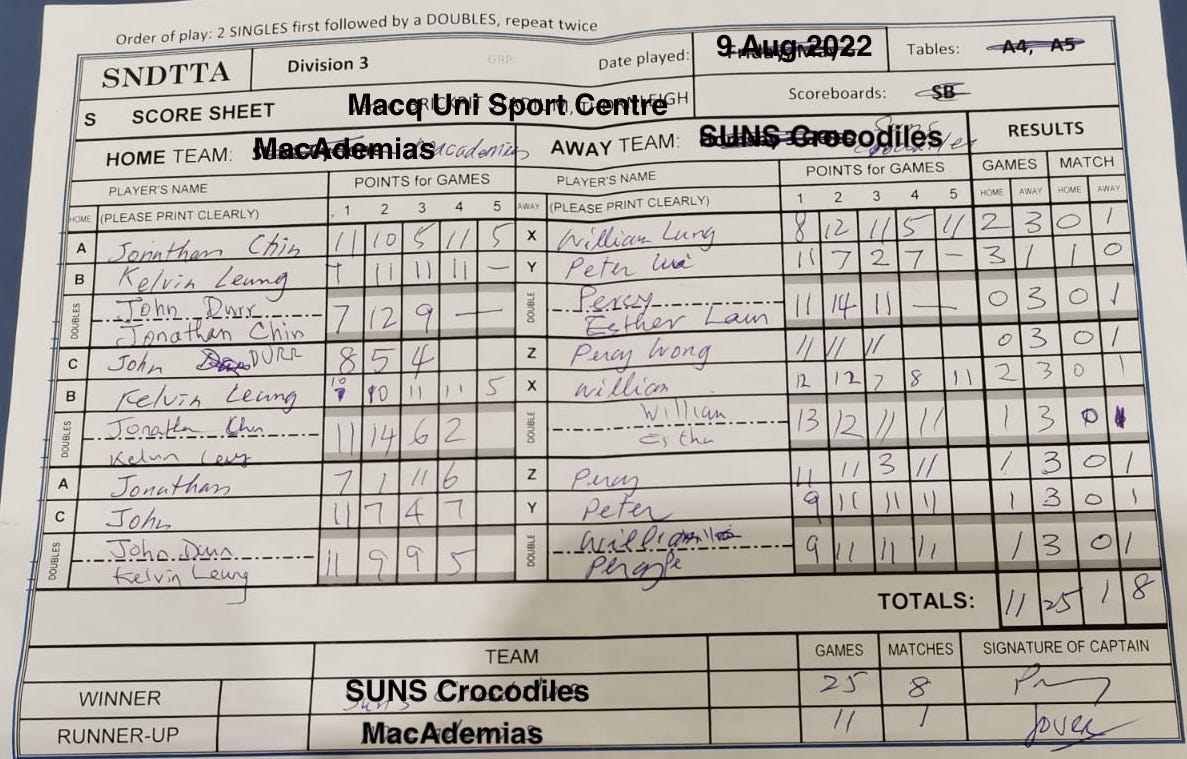 Order of play: 2 SINGLES first followed by a DOUBLES, repeat twice
SNDTTA Division 3 GRP Date played: 9 Aug 2022 Tables: A4, A5
S SCORE SHEET Macq Uni Sport Centre Scoreboards: SB
HOME TEAM: MacAdemias Macademias AWAY TEAM: SUNS Crocodiles Suns Crocodiles RESULTS
PLAYER'S NAME POINTS for GAMES PLAYER'S NAME POINTS for GAMES GAMES MATCH
HOME (PLEASE PRINT CLEARLY) 1 2 3 4 5 AWAY (PLEASE PRINT CLEARLY) 1 2 3 4 5 HOME AWAY HOME AWAY
A Jonathan Chin 11 10 5 11 5 X William Lung 8 12 11 5 11 2 3 0 1
B Kelvin Leung 11 11 11 - Y Peter 11 7 2 7 - 3 1 1 0
DOUBLES John Durr DOUBLE Percy
Jonathan Chin 7 12 9 — Esther Lam 11 14 11 — 0 3 0 1
C John DURR 8 5 4 Z Percy Wong 11 11 11 0 3 0 1
B Kelvin Leung 10 10 11 11 5 X William 12 12 7 8 11 2 3 0 1
DOUBLES Jonathan Chin DOUBLE William
Kelvin Leung 11 14 6 2 Esther 13 12 11 11 1 3 0 1
A Jonathan 7 1 11 6 Z Percy 11 11 3 11 1 3 0 1
C John 11 7 4 7 Y Peter 9 11 11 11 1 3 0 1
DOUBLES John Durr DOUBLE William
Kelvin Leung 11 9 9 5 9 11 11 11 1 3 0 1
TOTALS: 11 25 1 8
TEAM GAMES MATCHES SIGNATURE OF CAPTAIN
WINNER SUNS Crocodiles 25 8
RUNNER-UP MacAdemias 11 1